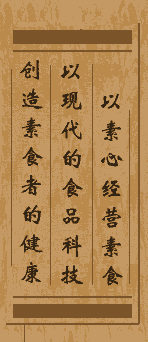 以素心经营素食
以现代的食品科技
创造素食者的健康